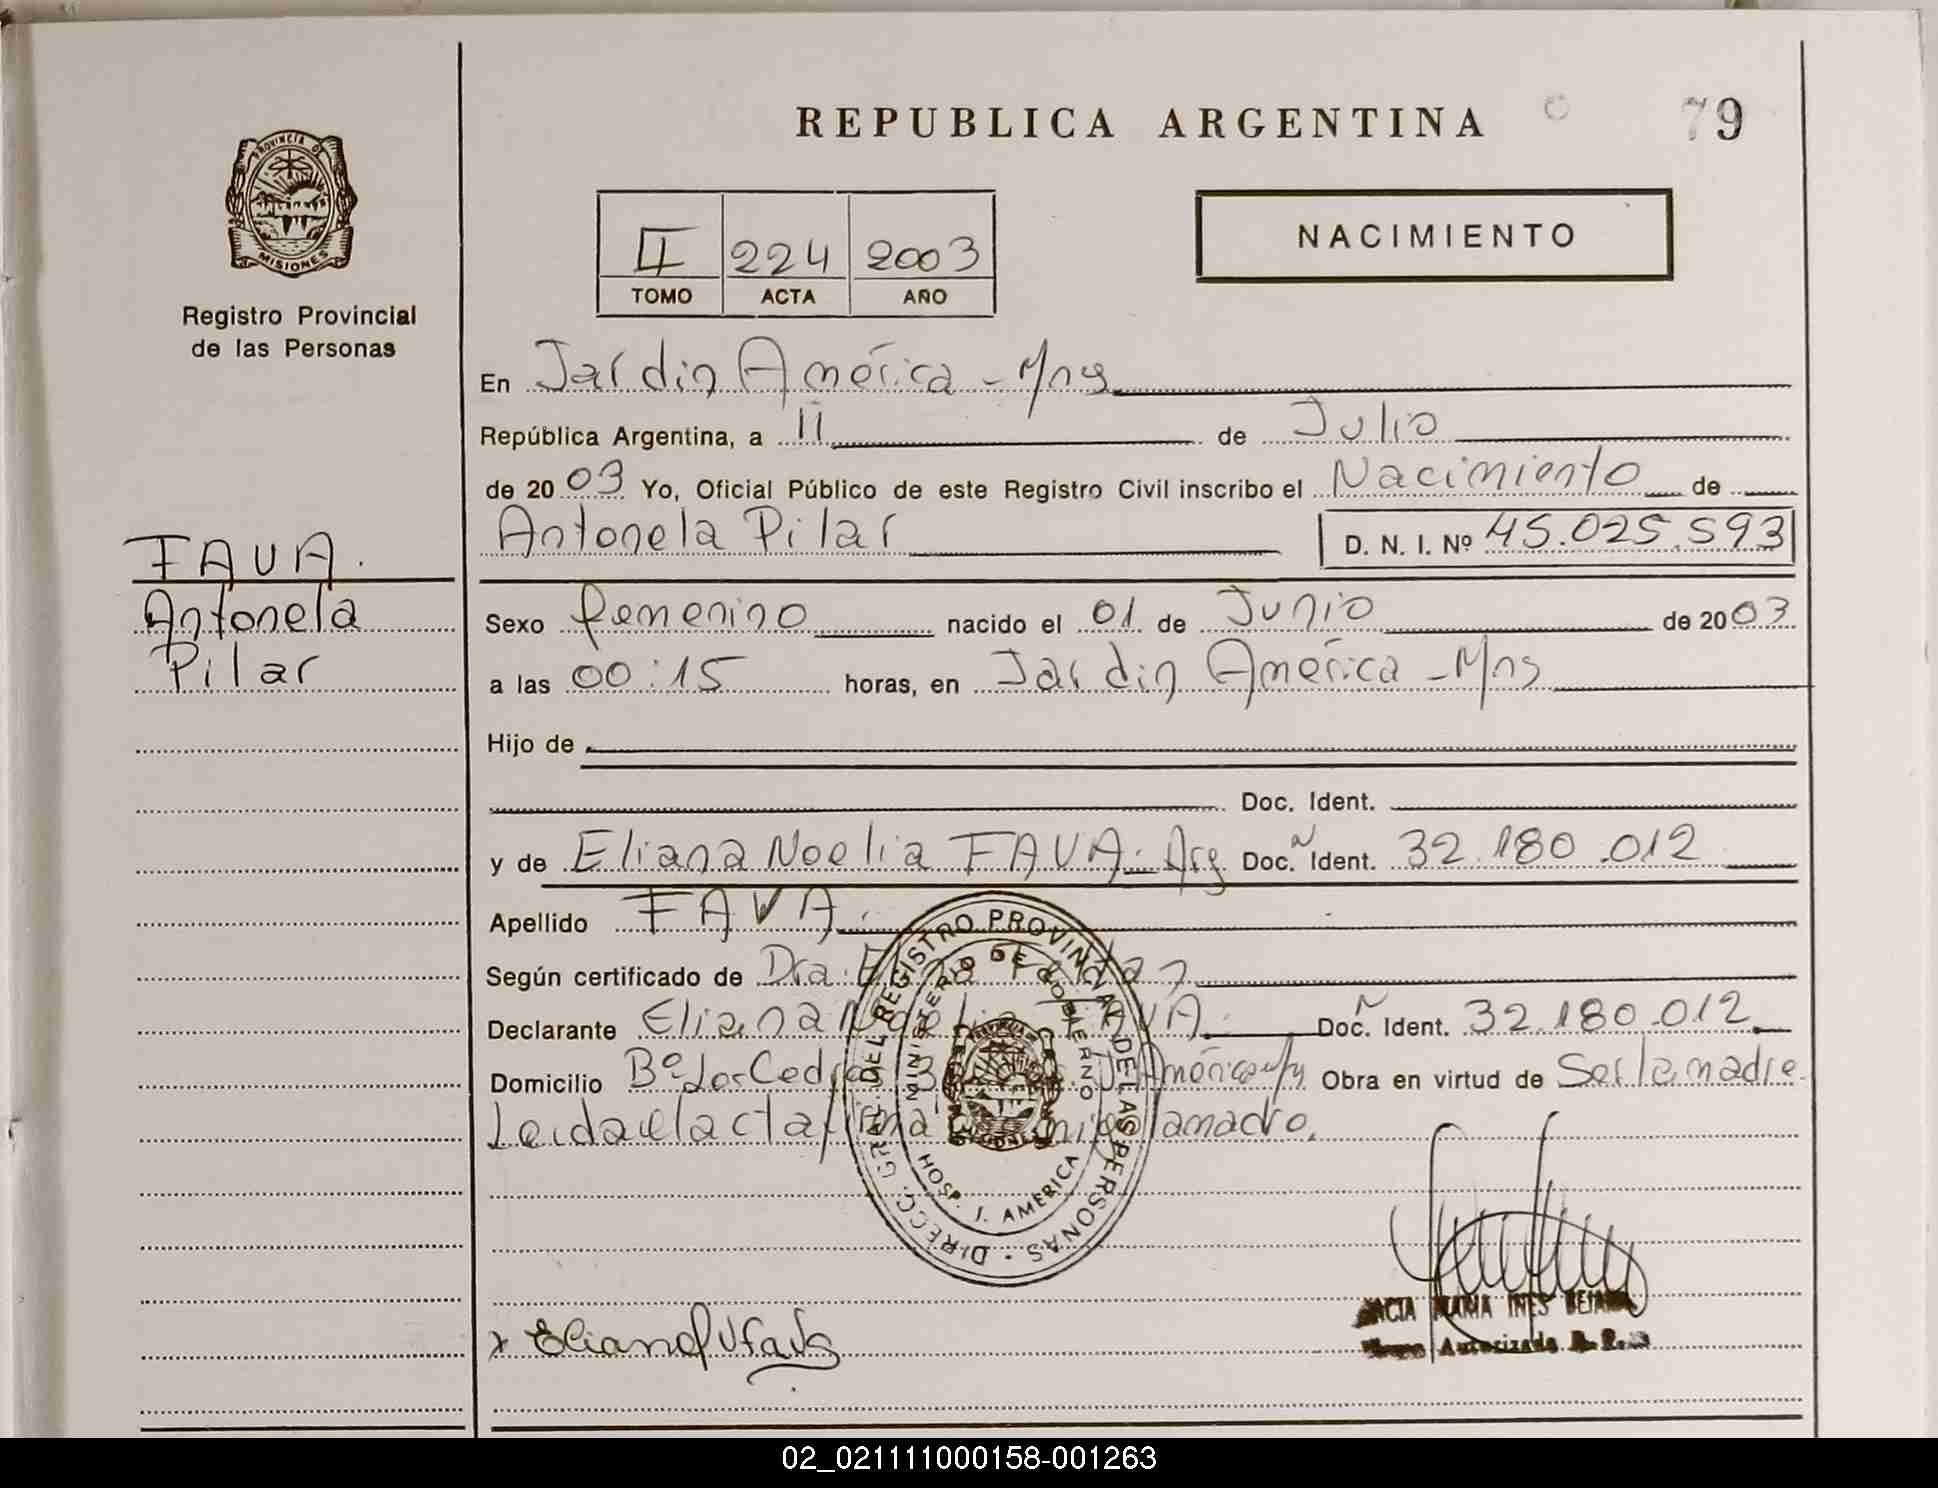 REPUBLICA ARGENTINA
79
PROVINCIA DE
MISIONES
Registro Provincial
de las Personas
II 224 2003
TOMO ACTA AÑO
NACIMIENTO
En Jardin América - Mns
República Argentina, a 11 de Julio
de 2003 Yo, Oficial Público de este Registro Civil inscribo el Nacimiento de
Antonela Pilar D. N. I. Nº 45.025.593
FAVA.
Antonela
Pilar
Sexo femenino nacido el 01 de Junio de 2003
a las 00:15 horas, en Jardin América - Mns
Hijo de
Doc. Ident.
y de Eliana Noelia FAVA. Arg Doc. Ident. 32.180.012
Apellido FAVA.
Según certificado de Dra.
Declarante Eliana Noelia FAVA. Doc. Ident. 32.180.012
Domicilio Bº Los Cedros J. América Obra en virtud de Ser la madre
Leida el acta firma la madre.
DIRECC. GRAL. DEL REGISTRO PROVINCIAL DE LAS PERSONAS
MINISTERIO DE GOBIERNO
HOSP. J. AMERICA
MARIA INES
Autorizada
02_021111000158-001263